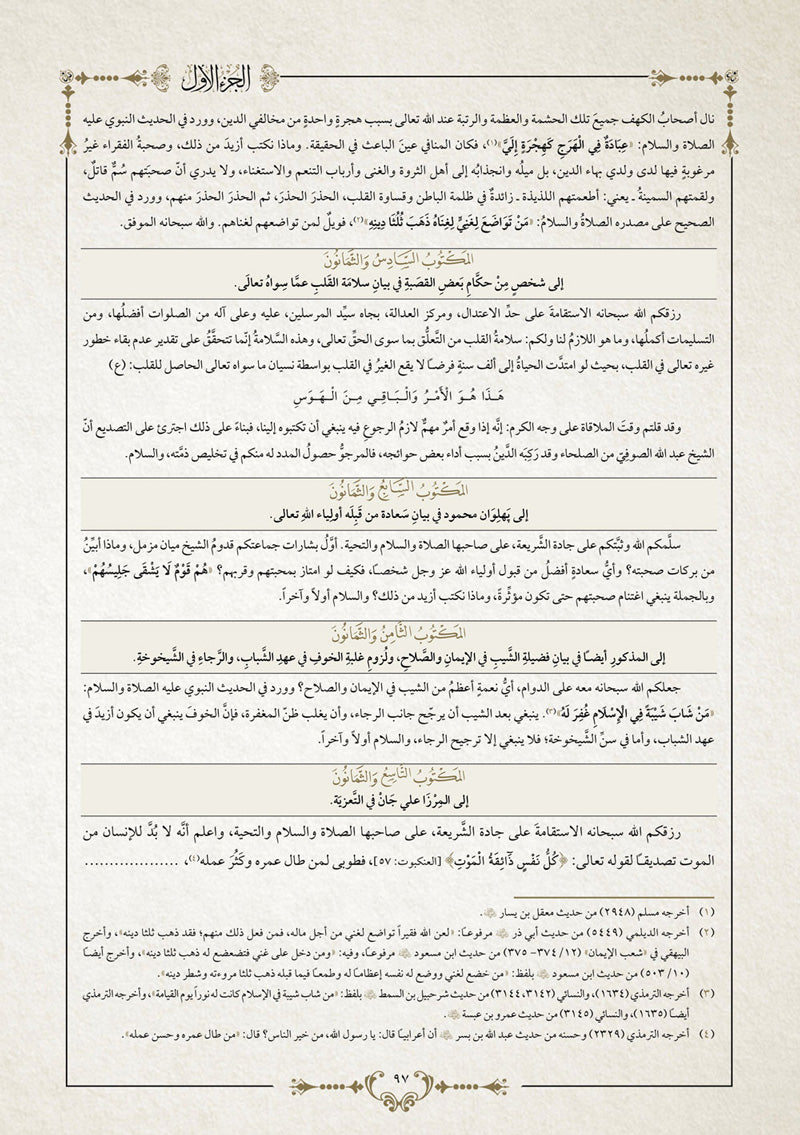 الجزء الأول
نال أصحابُ الكهف جميعَ تلك الحشمة والعظمة والرتبة عند الله تعالى بسبب هجرةٍ واحدةٍ من مخالفي الدين، وورد في الحديث النبوي عليه
الصلاة والسلام: «عِبَادَةٌ فِي الْهَرَجِ كَهِجْرَةٍ إِلَيَّ»(١)، فكان المنافي عينَ الباعث في الحقيقة. وماذا نكتب أزيدَ من ذلك، وصحبةُ الفقراء غيرُ
مرغوبةٍ فيها لدى ولدي بهاء الدين، بل ميلُه وانجذابُه إلى أهل الثروة والغنى وأرباب التنعم والاستغناء، ولا يدري أنّ صحبتَهم سُمٌّ قاتلٌ،
ولقمتَهم السمينةُ ـ يعني: أطعمتهم اللذيذة ـ زائدةٌ في ظلمة الباطن وقساوة القلب، الحذرَ الحذرَ، ثم الحذرَ الحذرَ منهم، وورد في الحديث
الصحيح على مصدره الصلاةُ والسلامُ: «مَنْ تَوَاضَعَ لِغَنِيٍّ لِغِنَاهُ ذَهَبَ ثُلُثَا دِينِهِ»(٢)، فويلٌ لمن تواضعهم لغناهم. والله سبحانه الموفق.
المَكْتُوبُ السَّادِسُ وَالثَّمَانُونَ
إلى شخصٍ مِنْ حكَّامِ بَعضِ القصَبةِ في بيانِ سلامَة القَلبِ عمَّا سِواهُ تعالَى.
رزقكم الله سبحانه الاستقامةَ على حدِّ الاعتدال، ومركز العدالة، بجاه سيِّد المرسلين، عليه وعلى آله من الصلوات أفضلُها، ومن
التسليمات أكملُها، وما هو اللازمُ لنا ولكم: سلامةُ القلب من التَّعلُّق بما سوى الحقِّ تعالى، وهذه السَّلامةُ إنّما تتحقَّقُ على تقدير عدم بقاء خطور
غيره تعالى في القلب، بحيث لو امتدَّت الحياةُ إلى ألف سنةٍ فرضـًا لا يقع الغيرُ في القلب بواسطة نسيان ما سواه تعالى الحاصل للقلب: (ع)
هَـذَا هُـوَ الْأَمْـرُ وَالْـبَـاقِـي مِـنَ الْـهَـوَسِ
وقد قلتم وقتَ الملاقاة على وجه الكرم: إنَّه إذا وقع أمرٌ مهمٌّ لازمُ الرجوعِ فيه ينبغي أن تكتبوه إلينا، فبناءً على ذلك اجترئ على التصديع أنّ
الشيخ عبد الله الصوفيّ من الصلحاء وقد رَكِبَه الدَّينُ بسبب أداء بعض حوائجه، فالمرجوُّ حصولُ المدد له منكم في تخليص ذمَّته، والسلام.
المَكْتُوبُ السَّابِعُ وَالثَّمَانُونَ
إلى پَهلِوَان محمود في بيانِ سَعادة من قَبِلَه أولِياء اللهِ تعالى.
سلَّمكم الله وثبَّتكم على جادة الشَّريعة، على صاحبها الصلاة والسلام والتحية. أوَّلُ بشارات جماعتكم قدومُ الشيخ ميان مزمل، وماذا أبيِّنُ
من بركات صحبته؟ وأيُّ سعادةٍ أفضلُ من قبول أولياء الله عز وجل شخصـًا، فكيف لو امتاز بمحبتهم وقربهم؟ «هُمْ قَوْمٌ لَا يَشْقَى جَلِيسُهُمْ»،
وبالجملة ينبغي اغتنام صحبتهم حتى تكون مؤثِّرةً، وماذا نكتب أزيد من ذلك؟ والسلام أولاً وآخراً.
المَكْتُوبُ الثَّامِنُ وَالثَّمَانُونَ
إلى المذكورِ أيضـًا في بيانِ فضيلةِ الشَّيبِ في الإيمانِ والصَّلاحِ، ولُزومِ غلبةِ الخوفِ في عهدِ الشَّبابِ، والرَّجاءِ في الشَّيخوخةِ.
جعلكم الله سبحانه معه على الدوام، أيُّ نعمةٍ أعظمُ من الشيب في الإيمان والصلاح؟ وورد في الحديث النبوي عليه الصلاة والسلام:
«مَنْ شَابَ شَيْبَةً فِي الْإِسْلَامِ غُفِرَ لَهُ»(٣). ينبغي بعد الشيب أن يرجّح جانب الرجاء، وأن يغلب ظنّ المغفرة، فإنَّ الخوفَ ينبغي أن يكون أزيدَ في
عهد الشباب، وأما في سنِّ الشَّيخوخة؛ فلا ينبغي إلا ترجيح الرجاء، والسلام أولاً وآخراً.
المَكْتُوبُ التَّاسِعُ وَالثَّمَانُونَ
إلى المِرْزَا علي جَانْ في التَّعزيَة.
رزقكم الله سبحانه الاستقامةَ على جادة الشَّريعة، على صاحبها الصلاة والسلام والتحية، واعلم أنَّه لا بُدَّ للإنسان من
الموت تصديقـًا لقوله تعالى: ﴿كُلُّ نَفْسٍ ذَآئِقَةُ الْمَوْتِ﴾ [العنكبوت: ٥٧]، فطوبى لمن طال عمره وكَثُرَ عمله(٤)، ..................
(١) أخرجه مسلم (٢٩٤٨) من حديث معقل بن يسار ﵁.
(٢) أخرجه الديلمي (٥٤٤٩) من حديث أبي ذر ﵁ مرفوعـًا: «لعن الله فقيراً تواضع لغني من أجل ماله، فمن فعل ذلك منهم؛ فقد ذهب ثلثا دينه»، وأخرج
البيهقي في «شعب الإيمان» (١٢/ ٣٧٤- ٣٧٥) من حديث ابن مسعود ﵁ مرفوعـًا، وفيه: «ومن دخل على غني فتضعضع له ذهب ثلثا دينه»، وأخرج أيضـًا
(١٠/ ٥٠٣) من حديث ابن مسعود ﵁ بلفظ: «من خضع لغني ووضع له نفسه إعظامـًا له وطمعـًا فيما قبله ذهب ثلثا مروءته وشطر دينه».
(٣) أخرجه الترمذي (١٦٣٤)، والنسائي (٣١٤٢، ٣١٤٤) من حديث شرحبيل بن السمط ﵁ بلفظ: «من شاب شيبة في الإسلام كانت له نوراً يوم القيامة»، وأخرجه الترمذي
أيضـًا (١٦٣٥)، والنسائي (٣١٤٥) من حديث عمرو بن عبسة ﵁.
(٤) أخرجه الترمذي (٢٣٢٩) وحسنه من حديث عبد الله بن بسر ﵁ أن أعرابيـًا قال: يا رسول الله، من خير الناس؟ قال: «من طال عمره وحسن عمله».
٩٧